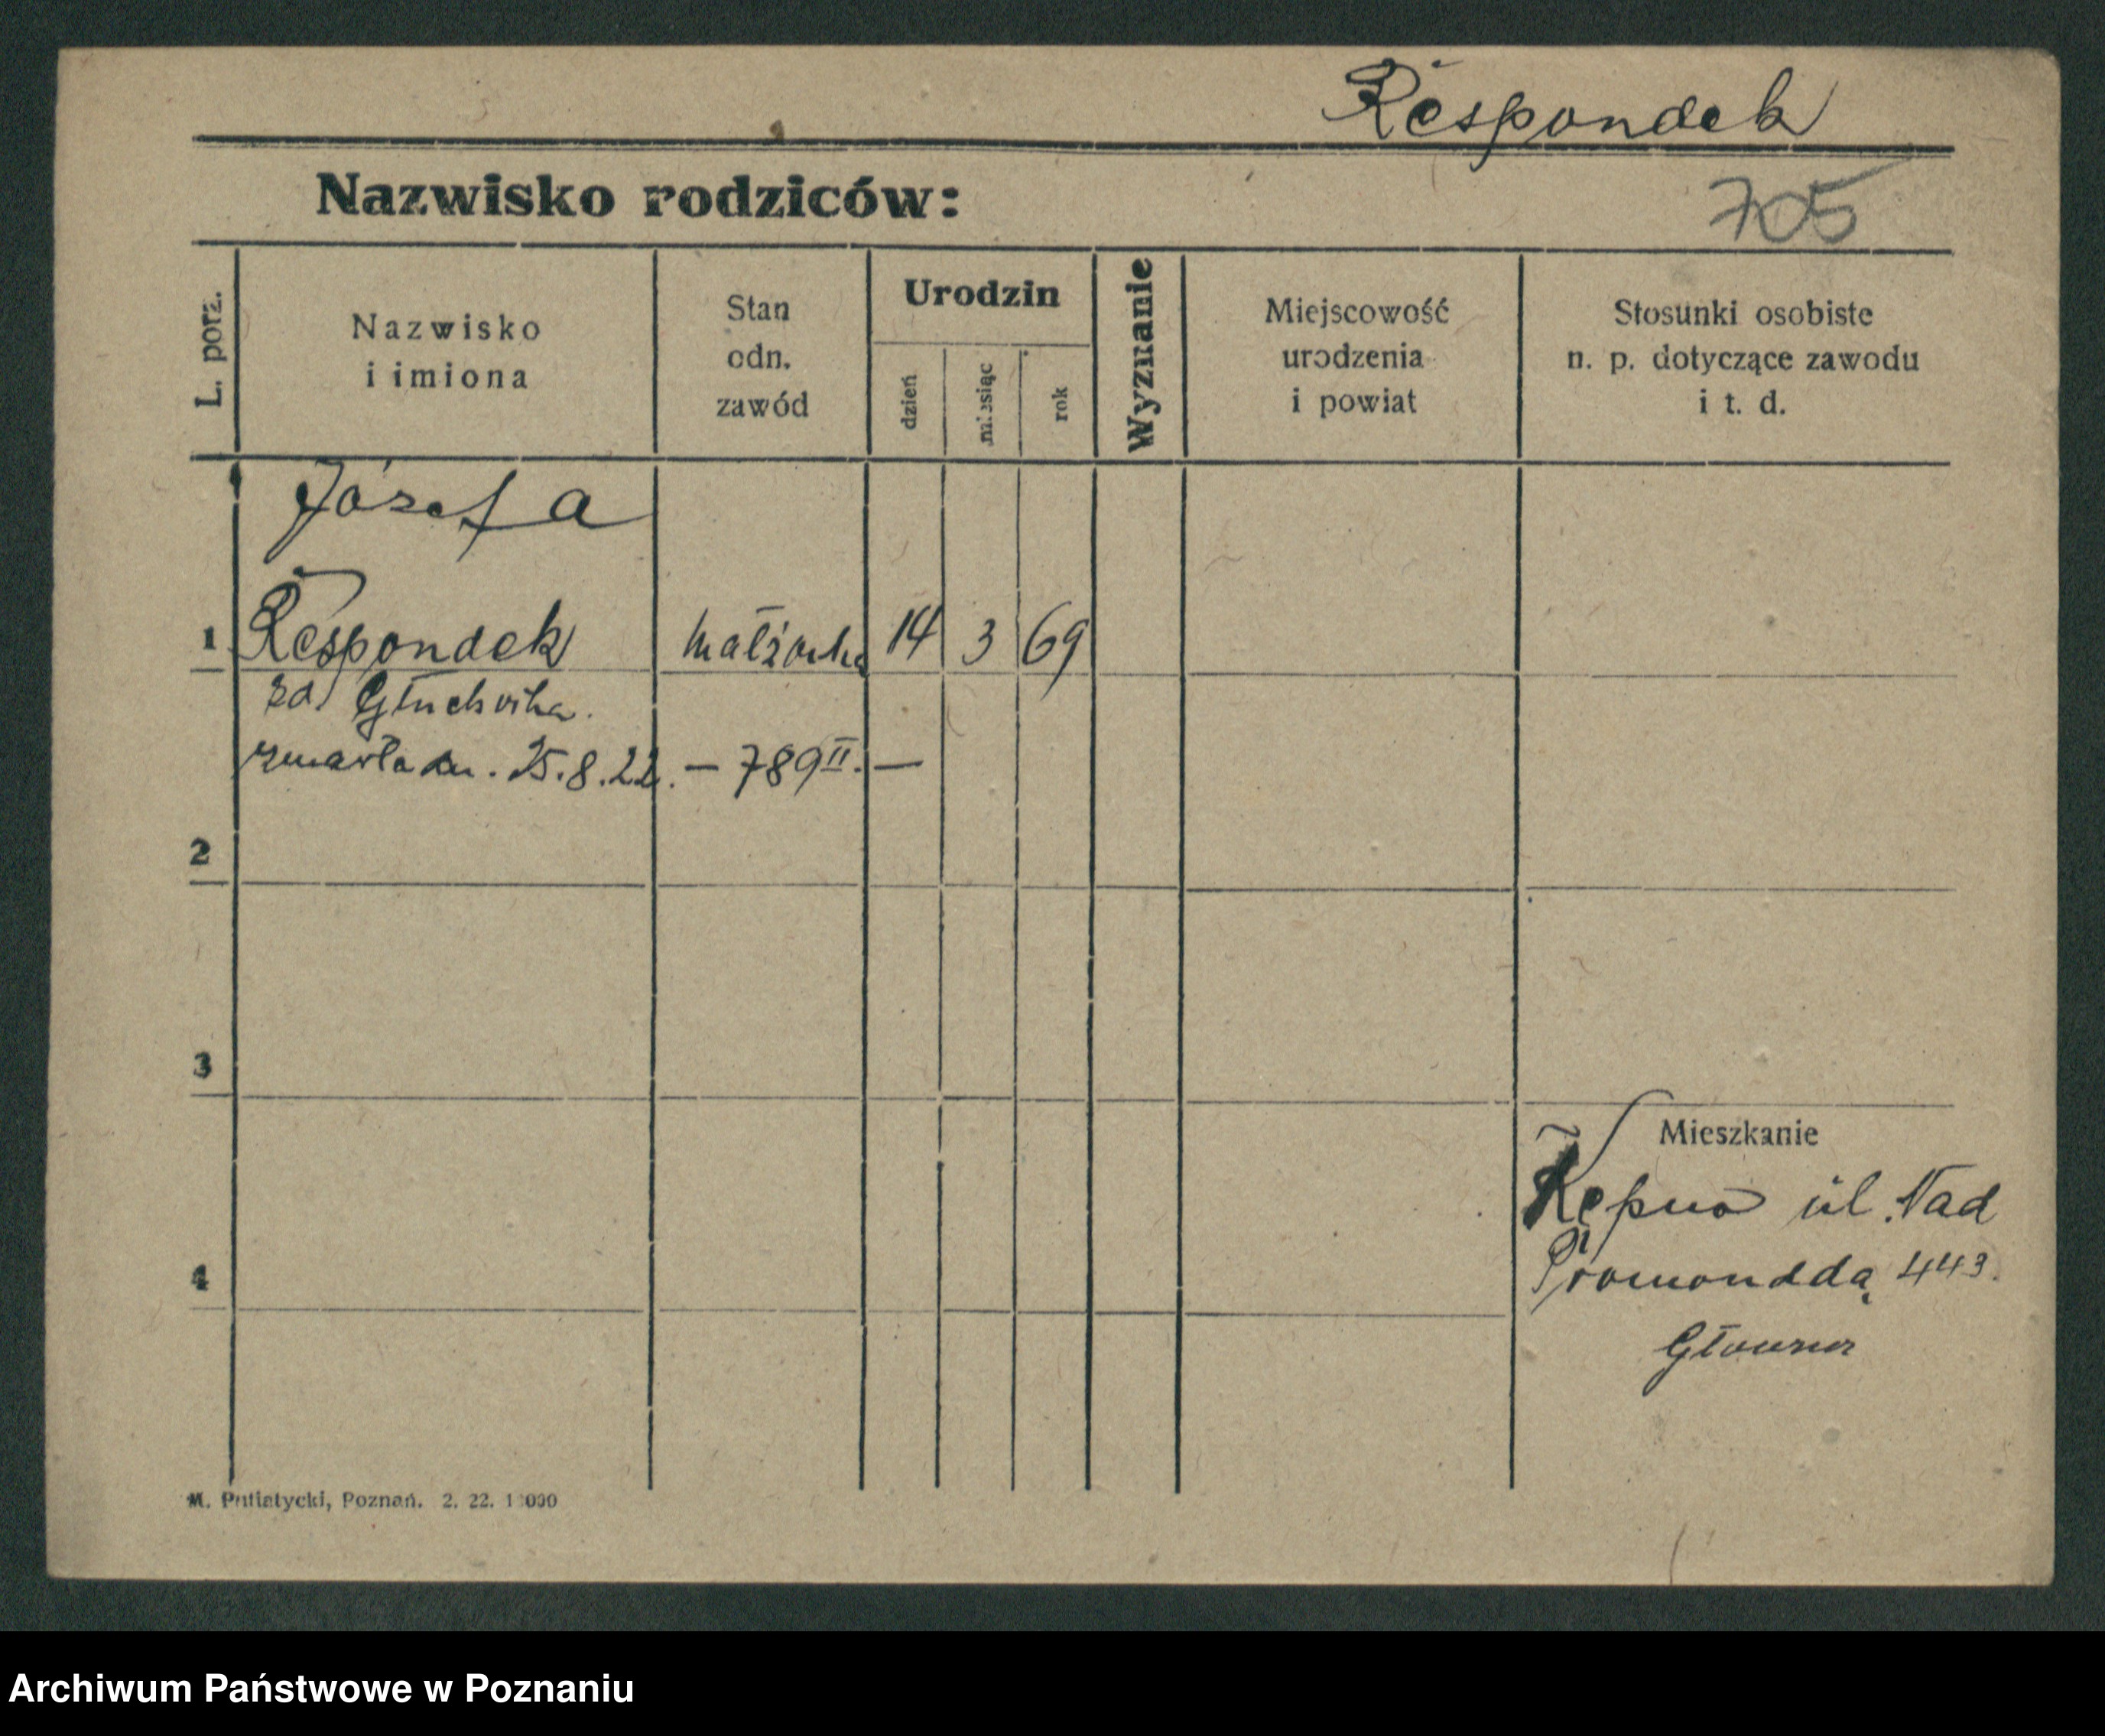 Respondek
Nazwisko rodziców:
705
L. porz.
Nazwisko
i imiona
Stan
odn.
zawód
Urodzin
dzień
miesiąc
rok
Wyznanie
Miejscowość
urodzenia
i powiat
Stosunki osobiste
n. p. dotyczące zawodu
i t. d.
Józefa
1 Respondek małżonka 14 3 69
zd
zmarła dn. 25.8.22. — 789 II. —
2
3
Mieszkanie
Kępno ul. Nad
443.
4
M. Putiatycki, Poznań. 2. 22.
Archiwum Państwowe w Poznaniu